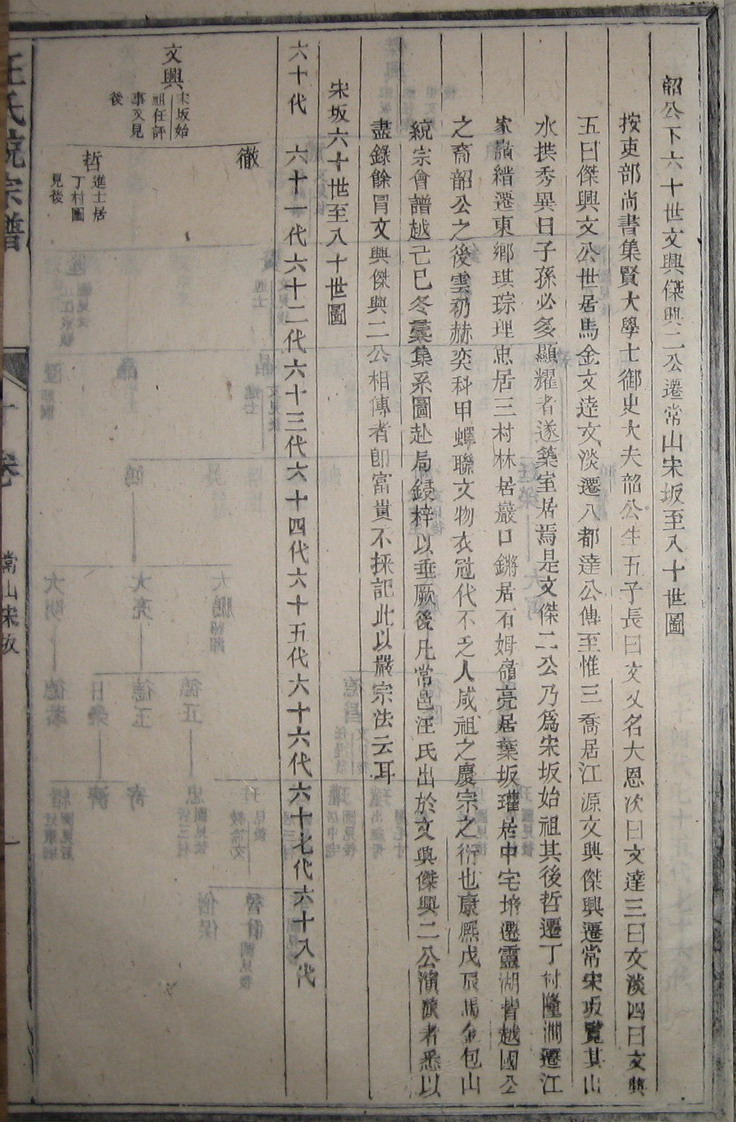 韶公下六十世文興傑興二公遷常山宋坂至八十世圖
按吏部尚書集賢大學士御史大夫韶公生五子長曰文乂名大恩次曰文達三曰文淡四曰文興
五曰傑興文公世居馬金文達文淡遷八都達公傳至惟三喬居江源文興傑興遷常宋坂覽其山
水拱秀異日子孫必多顯耀者遂築室居焉是文傑二公乃爲宋坂始祖其後哲遷丁村隆澗遷江
家嶺縉遷東鄉琪琮理忠居三村林居巖口鏘居石姆嶺亮居葉坂瓘居中宅堦遷靈湖皆越國公
之裔韶公之後雲礽赫奕科甲蟬聯文物衣冠代不乏人咸祖之慶宗之衍也康熙戊辰馬金包山
統宗會譜越己巳冬彙集系圖赴局鋟梓以垂厥後凡常邑汪氏出於文興傑興二公演派者悉以
盡錄餘冒文興傑興二公相傳者卽富貴不採記此以嚴宗法云耳
宋坂六十世至八十世圖
六十代 六十一代六十二代六十三代六十四代六十五代六十六代六十七代六十八代
文興
宋坂始
祖任評
事又見
後
徹
哲
進士居
丁村圖
見後
汪氏統宗譜
卷
常山宋坂
一